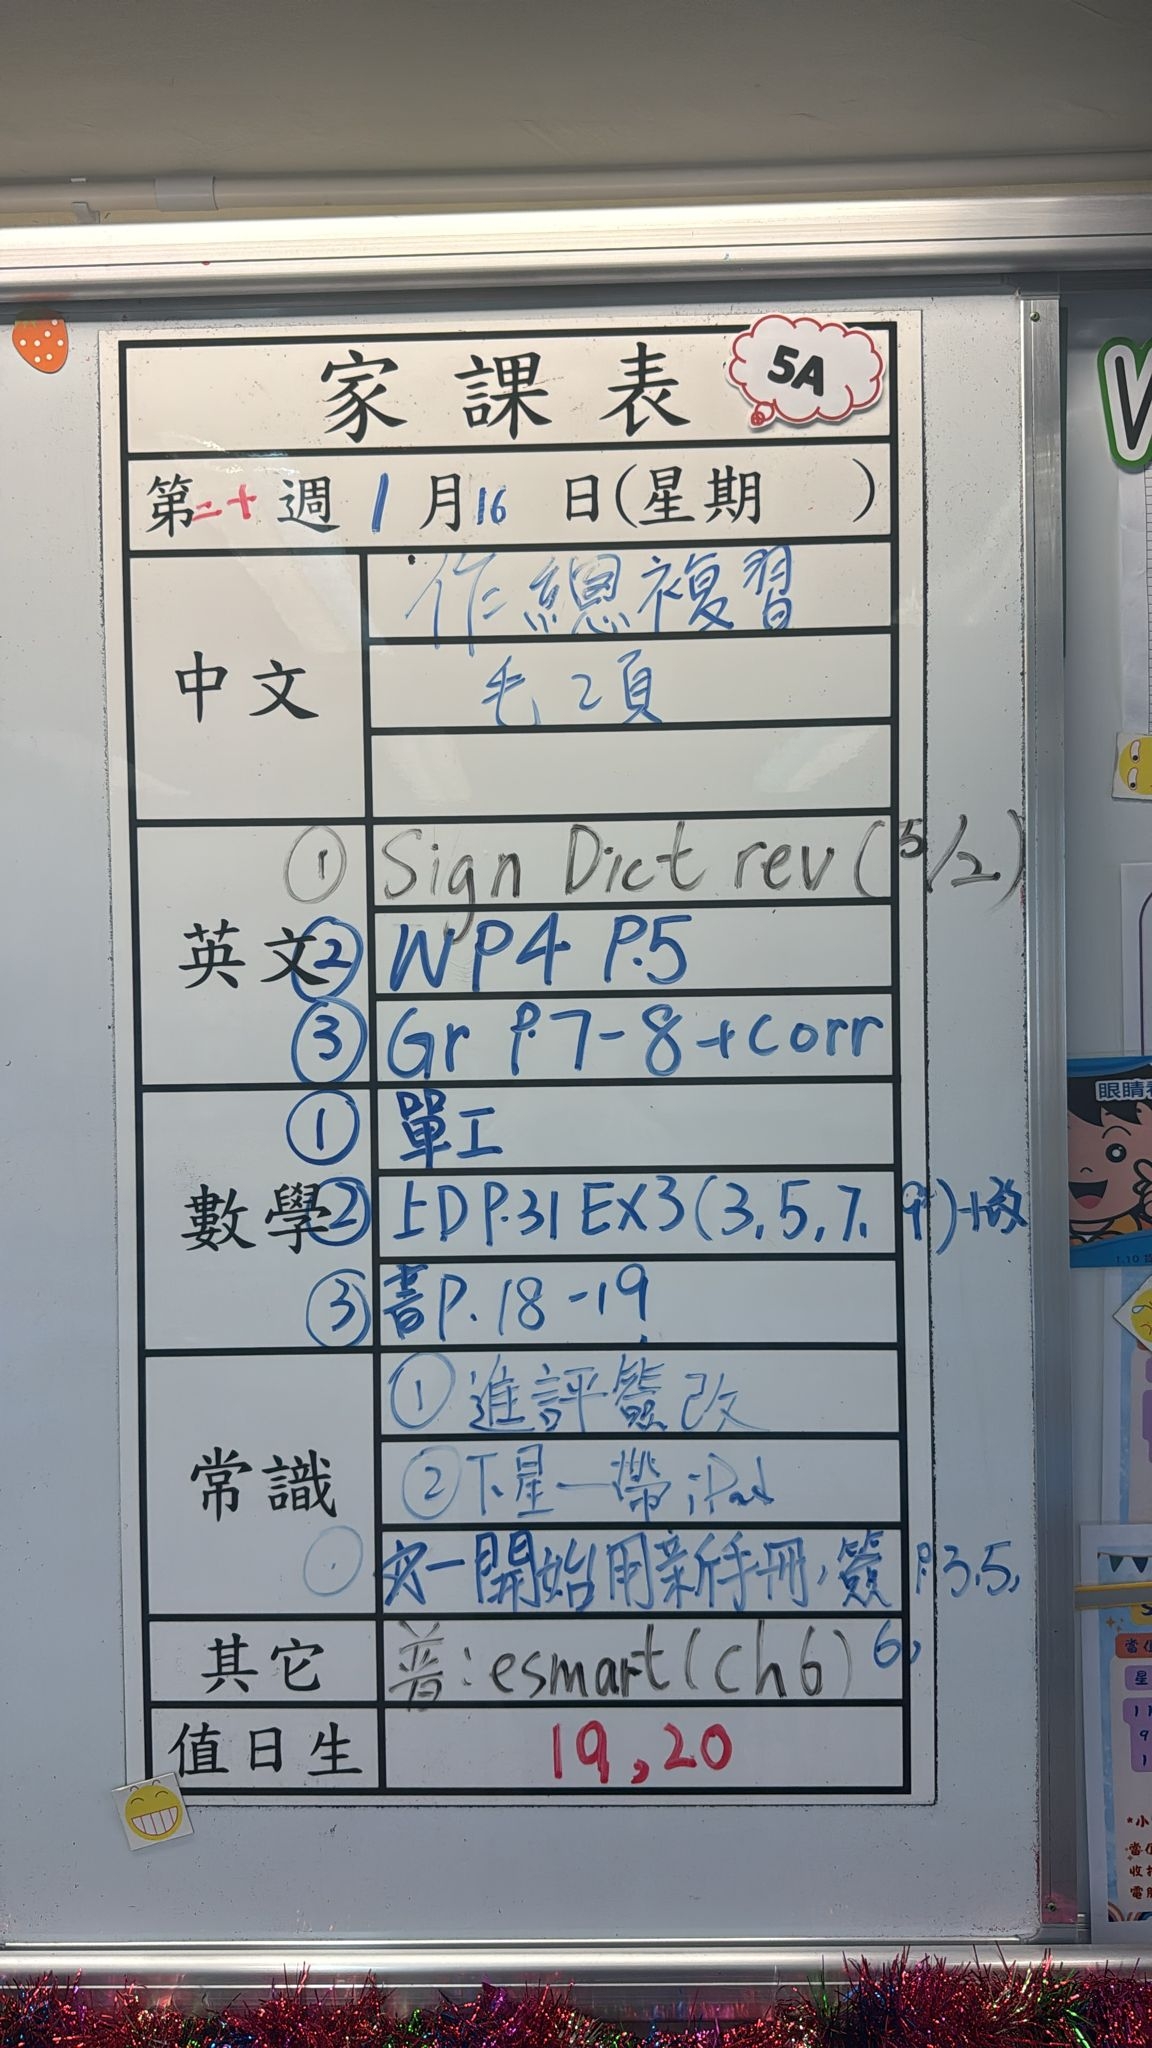 家課表
5A
第二十週 1月16日(星期 )
中文
作總複習
毛2頁
英文
① Sign Dict rev (5/2)
② WP4 P.5
③ Gr P.7-8 + corr
數學
① 單工
② 上D P.31 EX3 (3, 5, 7, 9)+改
③ 書P. 18-19
常識
① 進評簽改
② 下星一帶iPad
一開始用新手冊,簽 P.3,5,
6,
其它
普:esmart(ch6)
值日生
19,20
眼睛
1.10